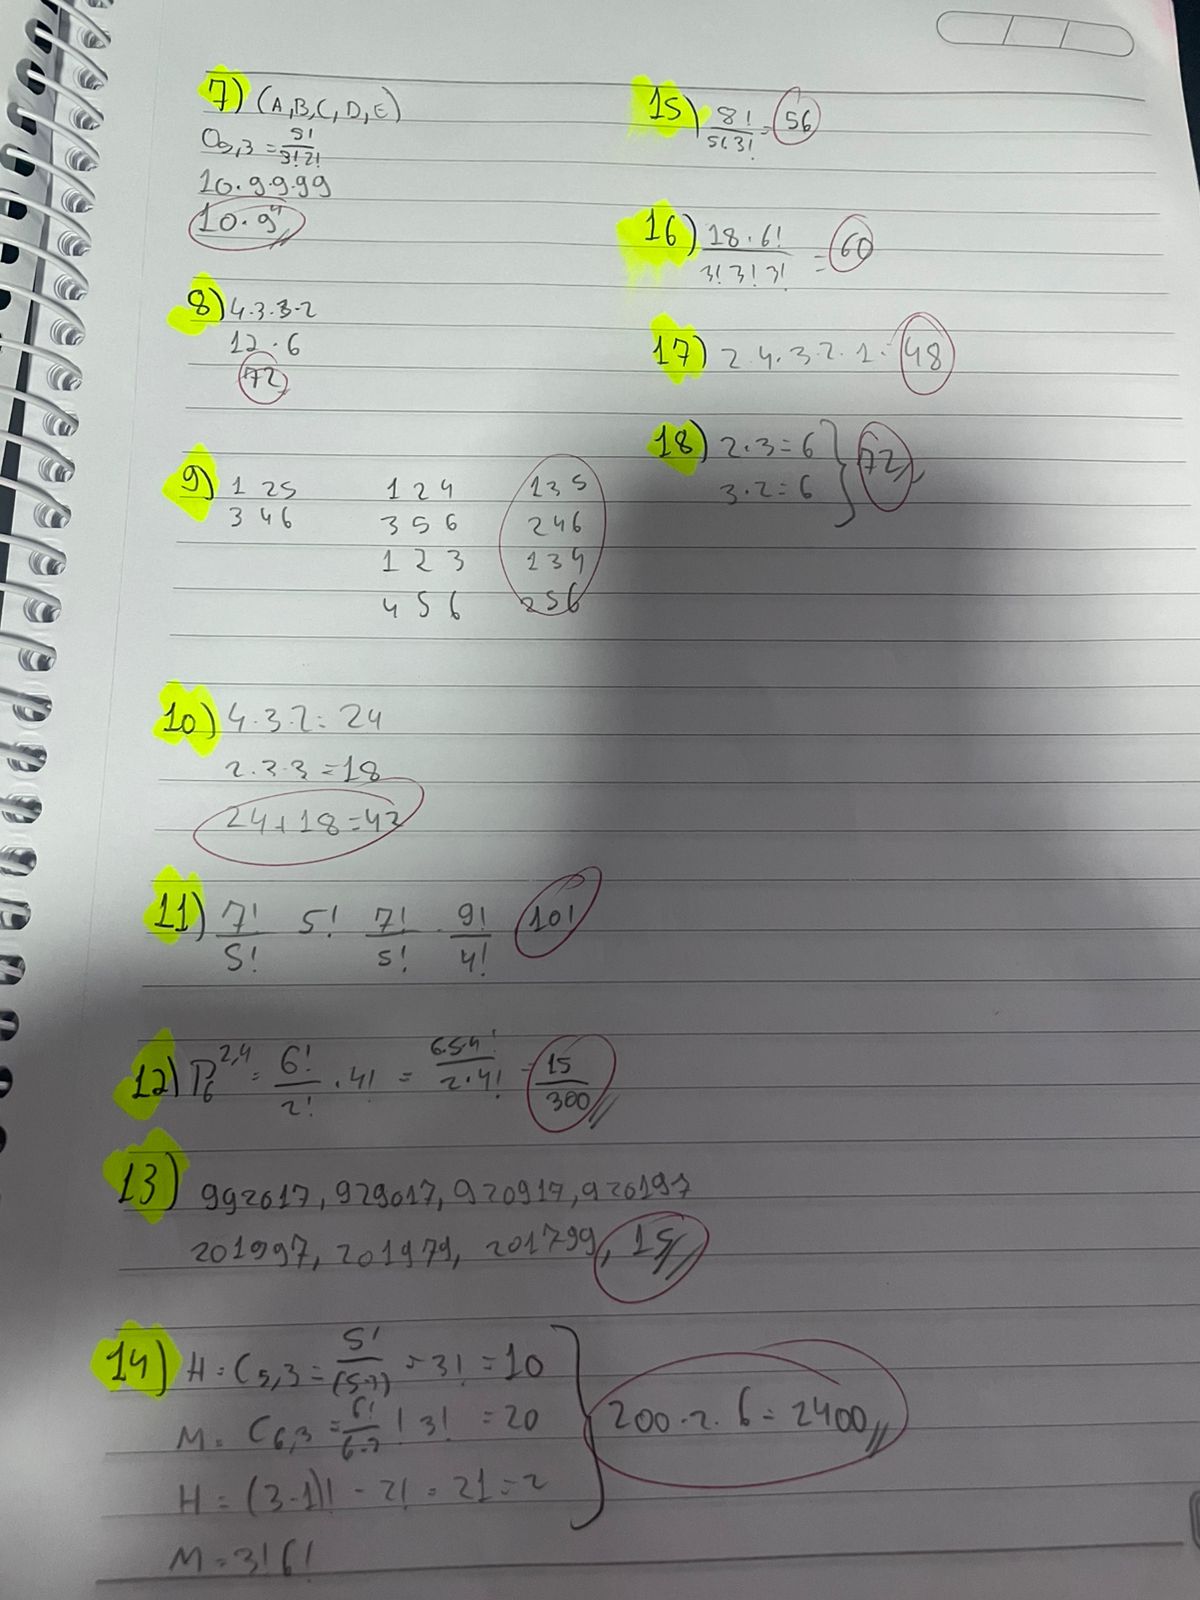 7) (A,B,C,D,E)
C5,3 = 5!/3!2!
10.9.9.99
10.9⁴
8) 4.3.3.2
12.6
72
9) 1 25 124 135
346 356 246
123 134
456 256
10) 4.3.2=24
2.3.3=18
24+18=42
11) 7!/5! 5! 7!/5! . 9!/4! 10!
12) P6^2,4 = 6!/2! . 4! = 6.5.4!/2.4! = 15/360
13) 992017, 929017, 920917, 920197
201997, 201979, 201799, 15
14) H = C5,3 = 5!/(5-3) = 3! = 10
M = C6,3 = 6!/6-3 ! 3! = 20
H = (3-1)! - 2! = 21 = 2
200.2.6 = 2400
M = 3!6!
15) 8!/5!3! = 56
16) 18.6!/3!3!3! = 60
17) 2.4.3.2.1 = 48
18) 2.3=6
3.2=6
72